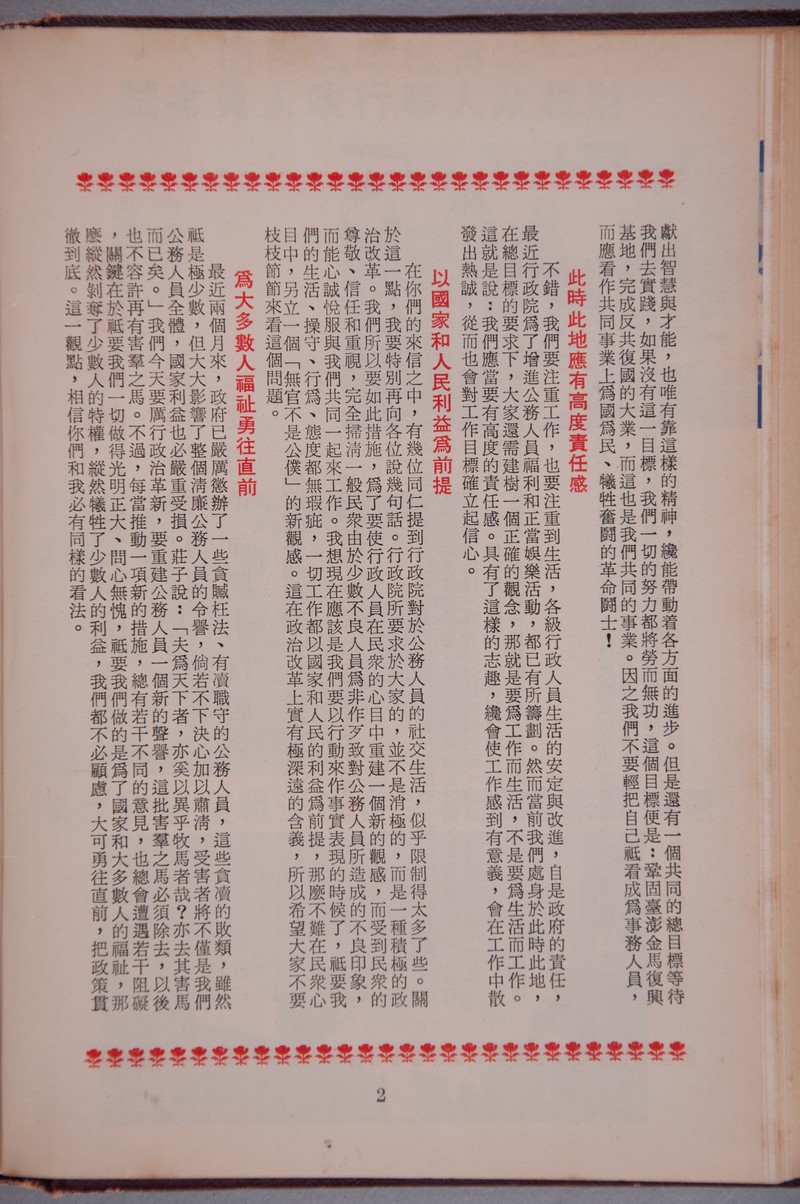 獻出智慧與才能，也唯有靠這樣的精神，纔能帶動着各方面的進步。但是還有一個共同的總目標等待
我們去實踐，如果沒有這一目標，我們一切的努力都將勞而無功，這個目標便是：鞏固臺澎金馬復興
基地，完成反共復國的大業，而這也是我們共同的事業。因之我們不要輕把自己祗看成爲事務人員，
而應看作共同事業上爲國爲民、犧牲奮鬪的革命鬪士！
此時此地應有高度責任感
不錯，我們要注重工作，也要注重到生活，各級行政人員生活的安定與改進，自是政府的責任，
最近行政院爲了增進公務人員福利和正當娛樂活動，都已有所籌劃。然而當前我們處身於此時此地，
在總目標的要求下，大家還需建樹一個正確的觀念，那就是要爲工作而生活，不是要爲生活而工作。
這就是說：我們應當要有高度的責任感。具有了這樣的志趣，纔會使工作感到有意義，會在工作中散
發出熱誠，從而也會對工作目標確立起信心。
以國家和人民利益爲前提
在你們的來信之中，有幾位同仁提到行政院對於公務人員的社交生活，似乎限制得太多了些。關
於這一點，我要特別再向各位說幾句話。行政院所要求於大家的，並不是消極的，而是一種積極的政
治改革。我們所以要如此措施，爲了要使行政人員在民衆的心目中重建一個新的觀感，而受到民衆的
尊敬、信任和重視，完全掃清一般民衆由於少數不良人員爲非作歹致對公務人員所造成的不良印象，
而能心誠悅服與我們共同一起來工作。我想現在應該是我們要以行動來作事實表現的時候了，祗要我
們的生活、操守、行爲、態度都無瑕疵，一切工作都以國家和人民的利益爲前提，那麽不難在民衆心
目中，另立一個「無官不是公僕」的新觀感。這在政治改革上實有極深遠的含義，所以希望大家不要
枝枝節節來看這個問題。
爲大多數人福祉勇往直前
最近兩個月來，政府已嚴厲懲辦了一些貪贓枉法、有瀆職守的公務人員，這些貪瀆的敗類，雖然
祗是極少數，但大大影響了整個清廉公務人員的令譽，倘若不下決心加以肅清，受害者將不僅是我們
公務人員全體，國家利益也必嚴重受損。莊子說：「夫爲天下者，亦奚以異乎牧馬者哉？亦去其害馬
而已矣。」我們今天要厲行政治革新，要重建公務人員一個新的聲譽，這批害羣之馬必須除去，以後
也不容許再有害羣之馬。不過，每當推動一項新的措施，總有若干不同的意見，也總會遭遇若干阻礙
，關鍵在於祗要我們一切做得光明正大、問心無愧，祗要我們做的是爲了國家和大多數人的福祉，那
麽縱然剝奪了少數人的特權，縱然犧牲了少數人的利益，我們都不必顧慮，大可勇往直前，把政策貫
徹到底。這一觀點，相信你們和我必有同樣的看法。
2